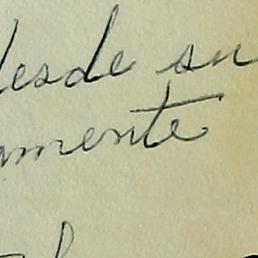 desde su
amente